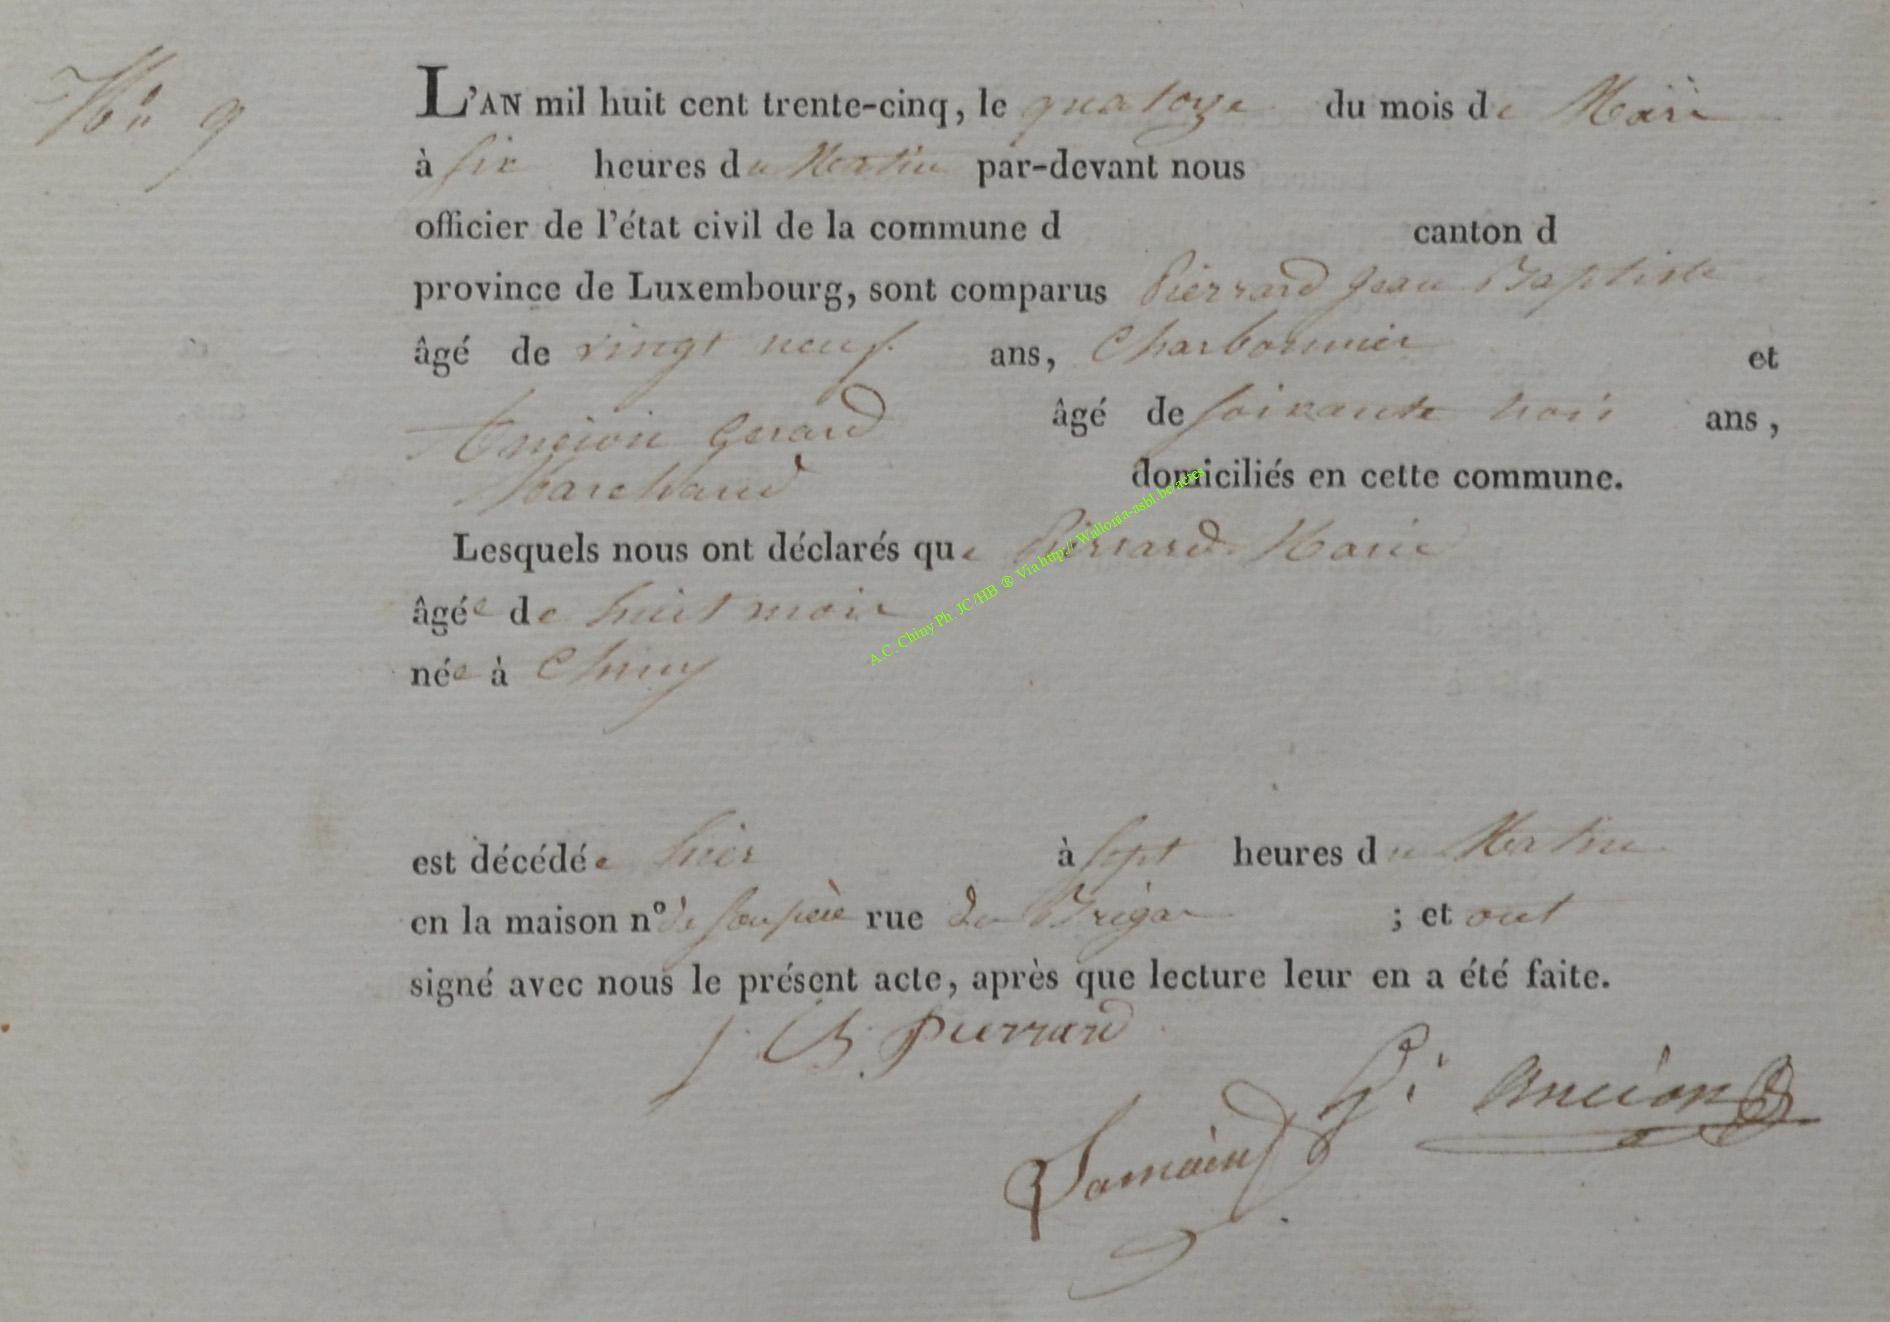 No 9
L'AN mil huit cent trente-cinq, le quatorze du mois de Mai
à six heures du Matin par-devant nous
officier de l'état civil de la commune d canton d
province de Luxembourg, sont comparus Pierrard Jean Baptiste
âgé de vingt neuf ans, Charbonnier et
Ancion Gerard âgé de soixante trois ans,
Marchand domiciliés en cette commune.
Lesquels nous ont déclarés que Pierrard Marie
âgée de huit mois
née à Chiny
est décédée hier à sept heures du Matin
en la maison n° de son père rue du ; et ont
signé avec nous le présent acte, après que lecture leur en a été faite.
J. B. Pierrard
G. Ancion
Lamain
A.C. Chiny Ph. JC/HB ® Via http:// Wallonia-asbl.be/actes